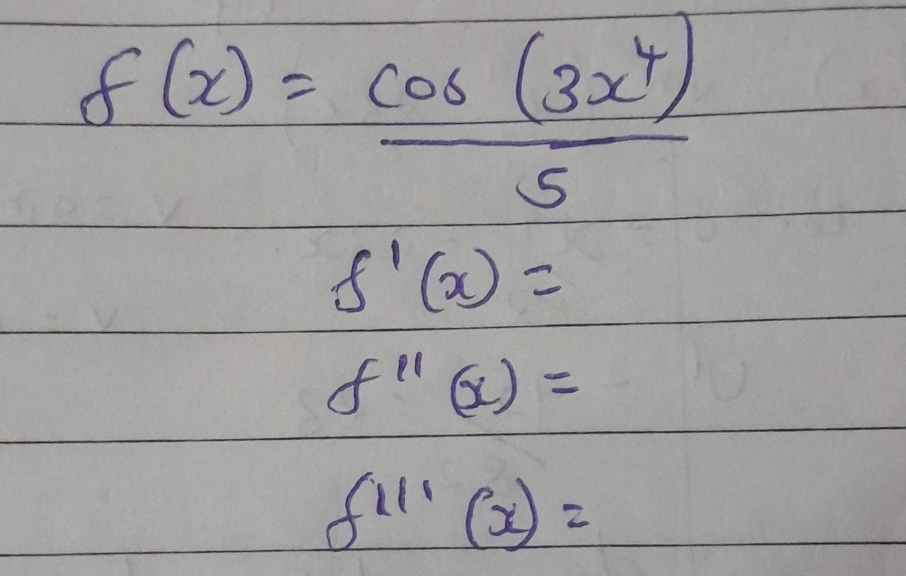 f(x) = cos (3x⁴)
5
f'(x) =
f''(x) =
f'''(x) =